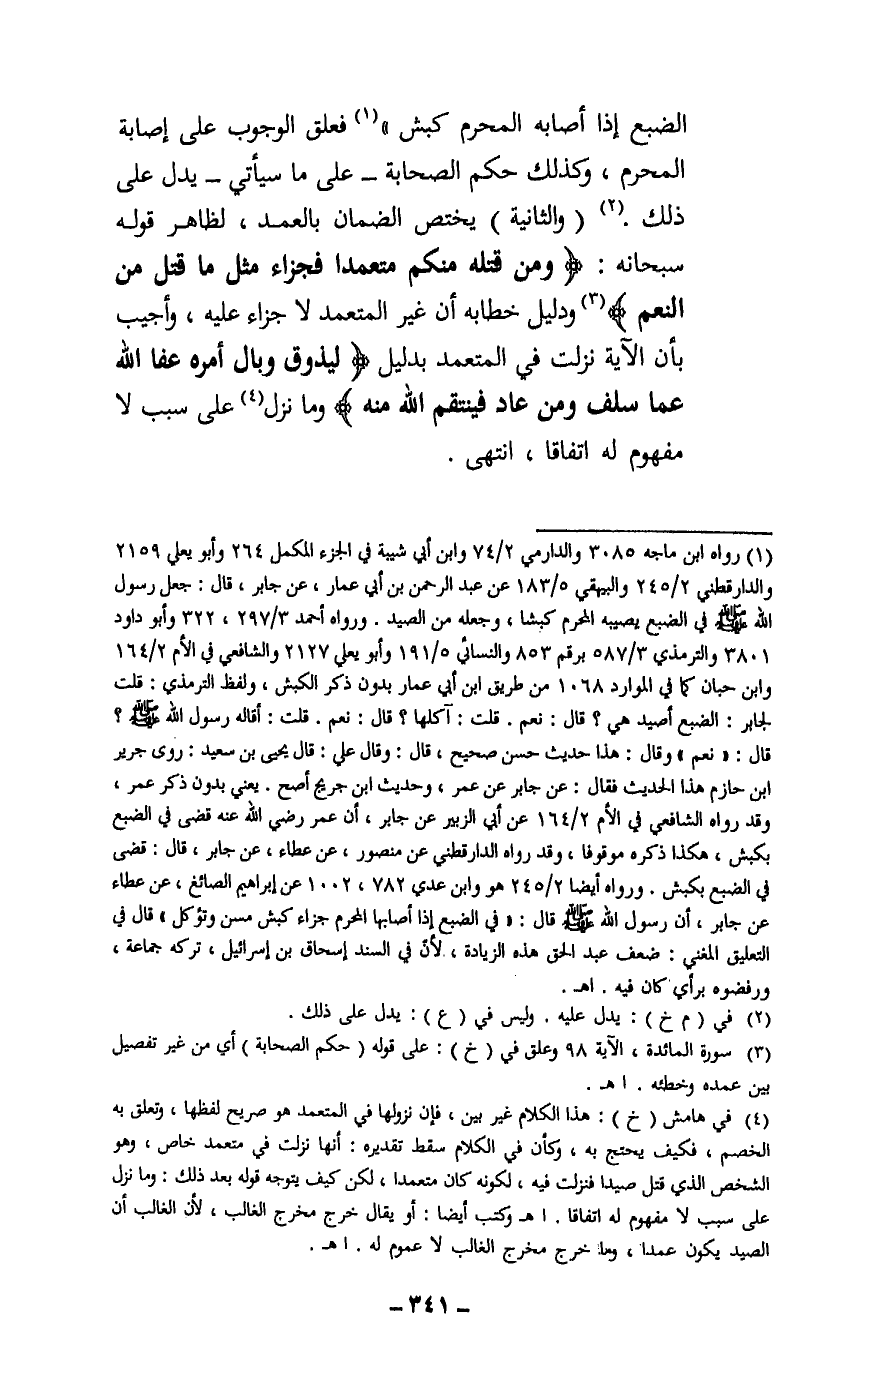 الضبع إذا أصابه المحرم كبش »(١) فعلق الوجوب على إصابة
المحرم ، وكذلك حكم الصحابة ــ على ما سيأتي ــ يدل على
ذلك .(٢) ( والثانية ) يختص الضمان بالعمد ، لظاهر قوله
سبحانه : ﴿ ومن قتله منكم متعمدا فجزاء مثل ما قتل من
النعم ﴾(٣) ودليل خطابه أن غير المتعمد لا جزاء عليه ، وأجيب
بأن الآية نزلت في المتعمد بدليل ﴿ ليذوق وبال أمره عفا الله
عما سلف ومن عاد فينتقم الله منه ﴾ وما نزل(٤) على سبب لا
مفهوم له اتفاقا ، انتهى .
(١) رواه ابن ماجه ٣٠٨٥ والدارمي ٧٤/٢ وابن أبي شيبة في الجزء المكمل ٢٦٤ وأبو يعلي ٢١٥٩
والدارقطني ٢٤٥/٢ والبيهقي ١٨٣/٥ عن عبد الرحمن بن أبي عمار ، عن جابر ، قال : جعل رسول
الله ﷺ في الضبع يصيبه المحرم كبشا ، وجعله من الصيد . ورواه أحمد ٢٩٧/٣ ، ٣٢٢ وأبو داود
٣٨٠١ والترمذي ٥٨٧/٣ برقم ٨٥٣ والنسائي ١٩١/٥ وأبو يعلي ٢١٢٧ والشافعي في الأم ١٦٤/٢
وابن حبان كما في الموارد ١٠٦٨ من طريق ابن أبي عمار بدون ذكر الكبش ، ولفظ الترمذي : قلت
لجابر : الضبع أصيد هي ؟ قال : نعم . قلت : آكلها ؟ قال : نعم . قلت : أقاله رسول الله ﷺ ؟
قال : « نعم » وقال : هذا حديث حسن صحيح ، قال : وقال علي : قال يحيى بن سعيد : روى جرير
ابن حازم هذا الحديث فقال : عن جابر عن عمر ، وحديث ابن جريج أصح . يعني بدون ذكر عمر ،
وقد رواه الشافعي في الأم ١٦٤/٢ عن أبي الزبير عن جابر ، أن عمر رضي الله عنه قضى في الضبع
بكبش ، هكذا ذكره موقوفا ، وقد رواه الدارقطني عن منصور ، عن عطاء ، عن جابر ، قال : قضى
في الضبع بكبش . ورواه أيضا ٢٤٥/٢ هو وابن عدي ٧٨٢ ، ١٠٠٢ عن إبراهيم الصائغ ، عن عطاء
عن جابر ، أن رسول الله ﷺ قال : « في الضبع إذا أصابها المحرم جزاء كبش مسن وتؤكل » قال في
التعليق المغني : ضعف عبد الحق هذه الزيادة ، لأنّ في السند إسحاق بن إسرائيل ، تركه جماعة ،
ورفضوه برأي كان فيه . اهـ .
(٢) في ( م خ ) : يدل عليه . وليس في ( ع ) : يدل على ذلك .
(٣) سورة المائدة ، الآية ٩٨ وعلق في ( خ ) : على قوله ( حكم الصحابة ) أي من غير تفصيل
بين عمده وخطئه . ا هـ .
(٤) في هامش ( خ ) : هذا الكلام غير بين ، فإن نزولها في المتعمد هو صريح لفظها ، وتعلق به
الخصم ، فكيف يحتج به ، وكأن في الكلام سقط تقديره : أنها نزلت في متعمد خاص ، وهو
الشخص الذي قتل صيدا فنزلت فيه ، لكونه كان متعمدا ، لكن كيف يتوجه قوله بعد ذلك : وما نزل
على سبب لا مفهوم له اتفاقا . ا هـ وكتب أيضا : أو يقال خرج مخرج الغالب ، لأن الغالب أن
الصيد يكون عمدا ، وما خرج مخرج الغالب لا عموم له . ا هـ .
ــ ٣٤١ ــ